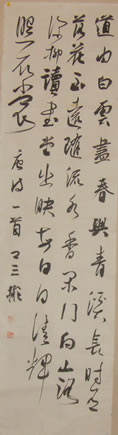 道由白雲盡春與青溪長時有
落花至遠隨流水香閑門向山路
深柳讀書堂幽映每白日清輝
照衣裳 唐詩一首